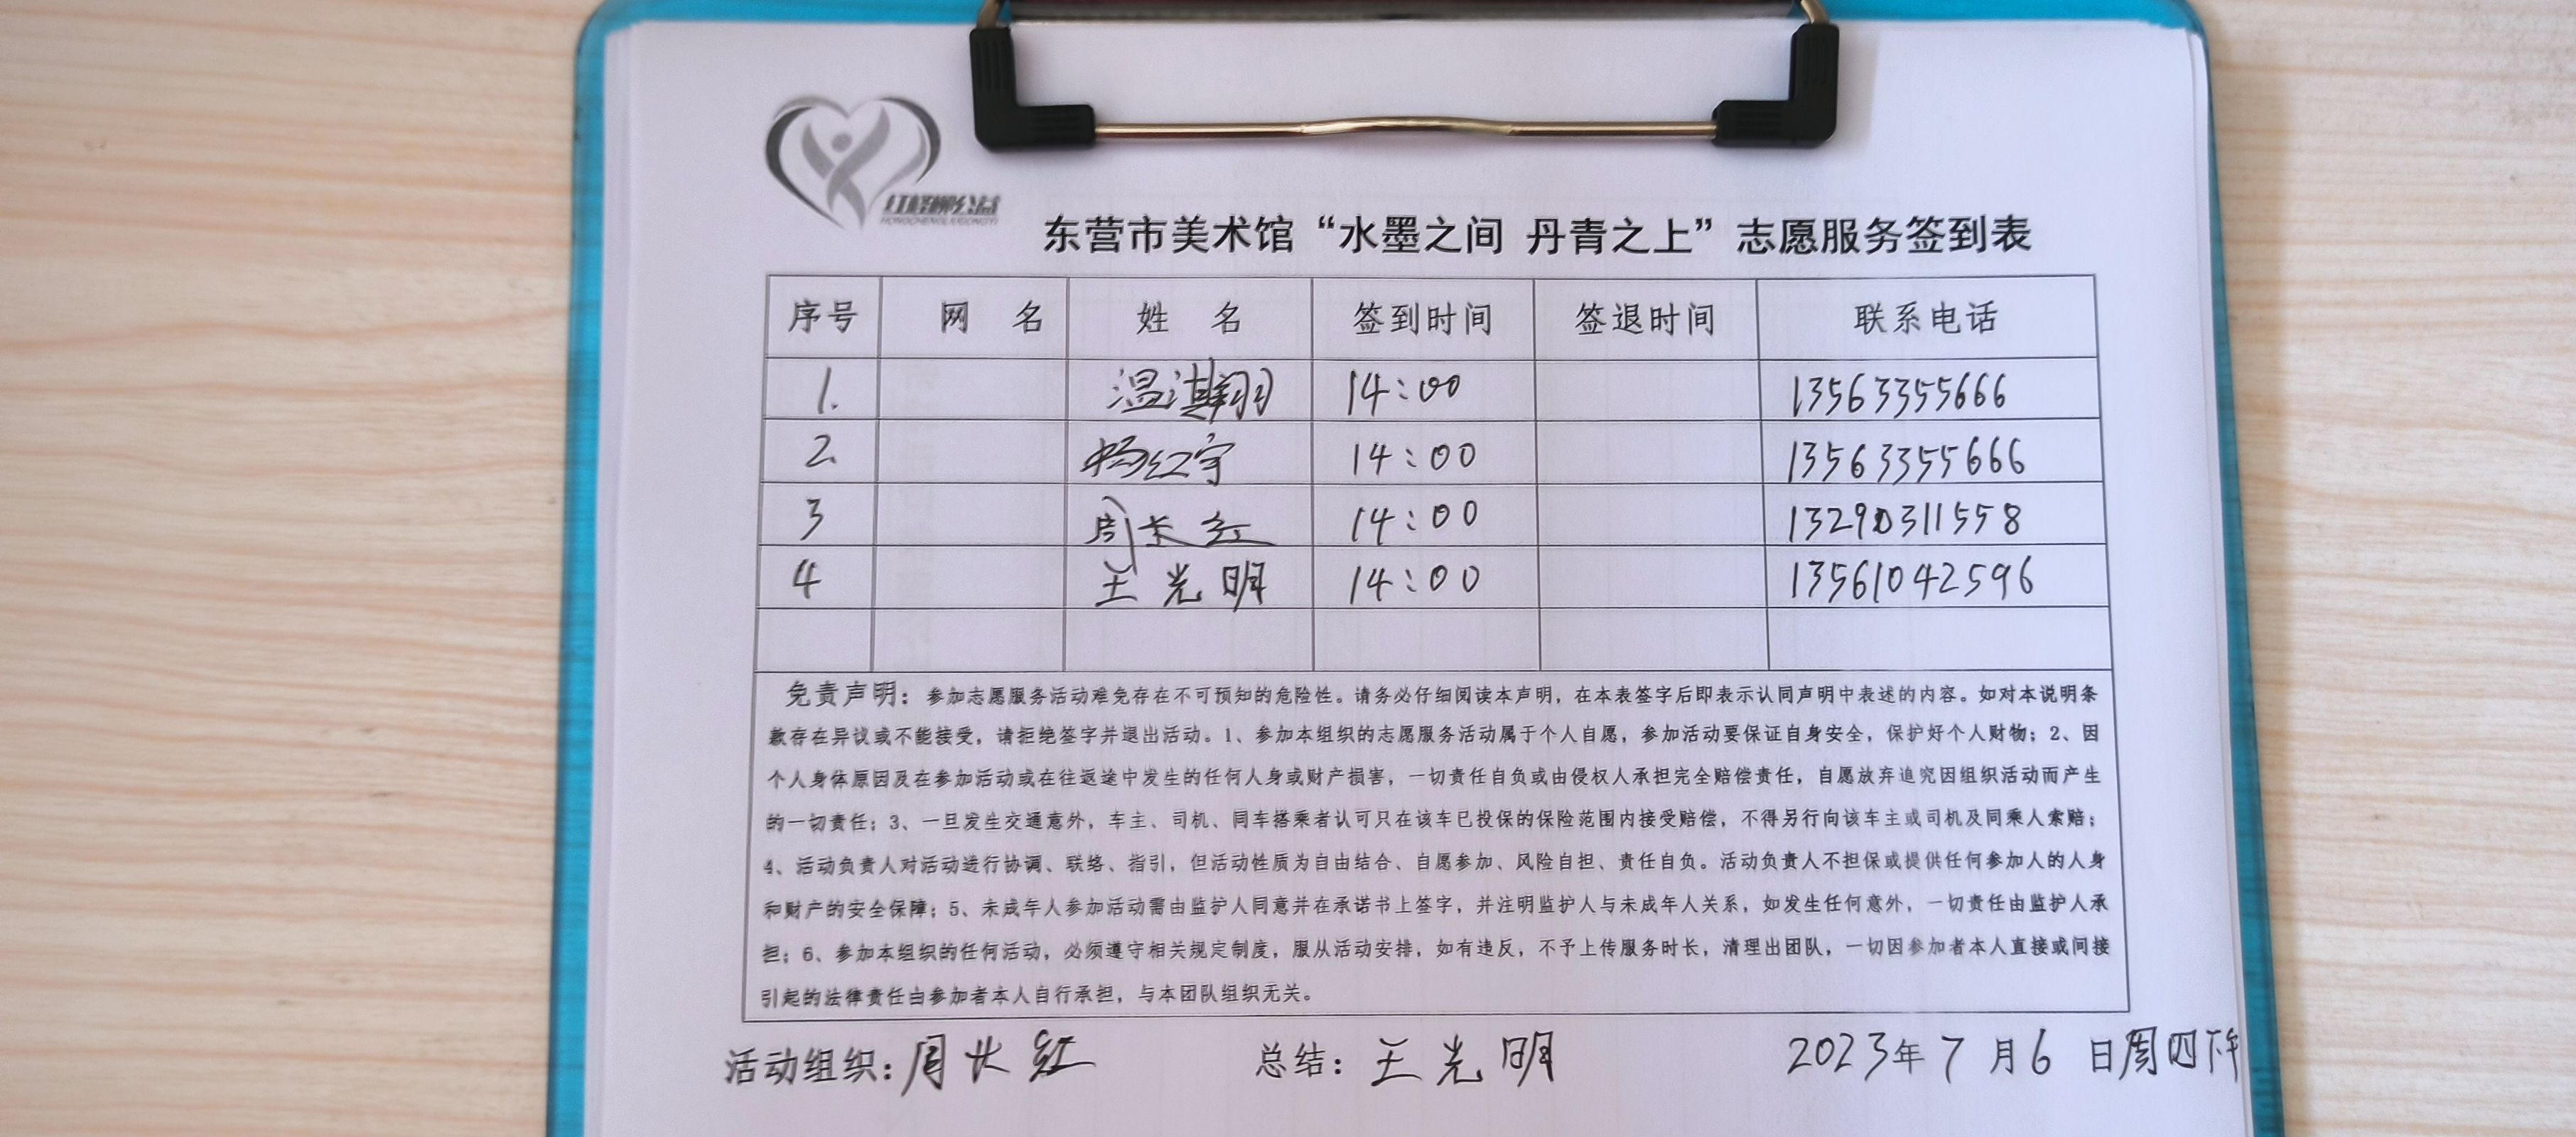 红柽柳公益
HONGCHENGLIUGONGYI
东营市美术馆“水墨之间 丹青之上”志愿服务签到表
序号 网 名 姓 名 签到时间 签退时间 联系电话
1. 温淇翔 14:00 13563355666
2. 杨红宇 14:00 13563355666
3 周长红 14:00 13290311558
4 王光明 14:00 13561042596
免责声明：参加志愿服务活动难免存在不可预知的危险性。请务必仔细阅读本声明，在本表签字后即表示认同声明中表述的内容。如对本说明条
款存在异议或不能接受，请拒绝签字并退出活动。1、参加本组织的志愿服务活动属于个人自愿，参加活动要保证自身安全，保护好个人财物；2、因
个人身体原因及在参加活动或在往返途中发生的任何人身或财产损害，一切责任自负或由侵权人承担完全赔偿责任，自愿放弃追究因组织活动而产生
的一切责任；3、一旦发生交通意外，车主、司机、同车搭乘者认可只在该车已投保的保险范围内接受赔偿，不得另行向该车主或司机及同乘人索赔；
4、活动负责人对活动进行协调、联络、指引，但活动性质为自由结合、自愿参加、风险自担、责任自负。活动负责人不担保或提供任何参加人的人身
和财产的安全保障；5、未成年人参加活动需由监护人同意并在承诺书上签字，并注明监护人与未成年人关系，如发生任何意外，一切责任由监护人承
担；6、参加本组织的任何活动，必须遵守相关规定制度，服从活动安排，如有违反，不予上传服务时长，清理出团队，一切因参加者本人直接或间接
引起的法律责任由参加者本人自行承担，与本团队组织无关。
活动组织：周长红 总结：王光明 2023年7月6日周四下午